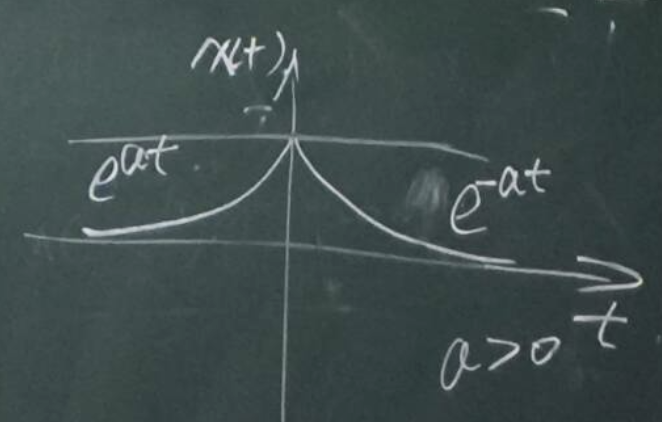 x(t)
e^{at}
e^{-at}
t
a>0